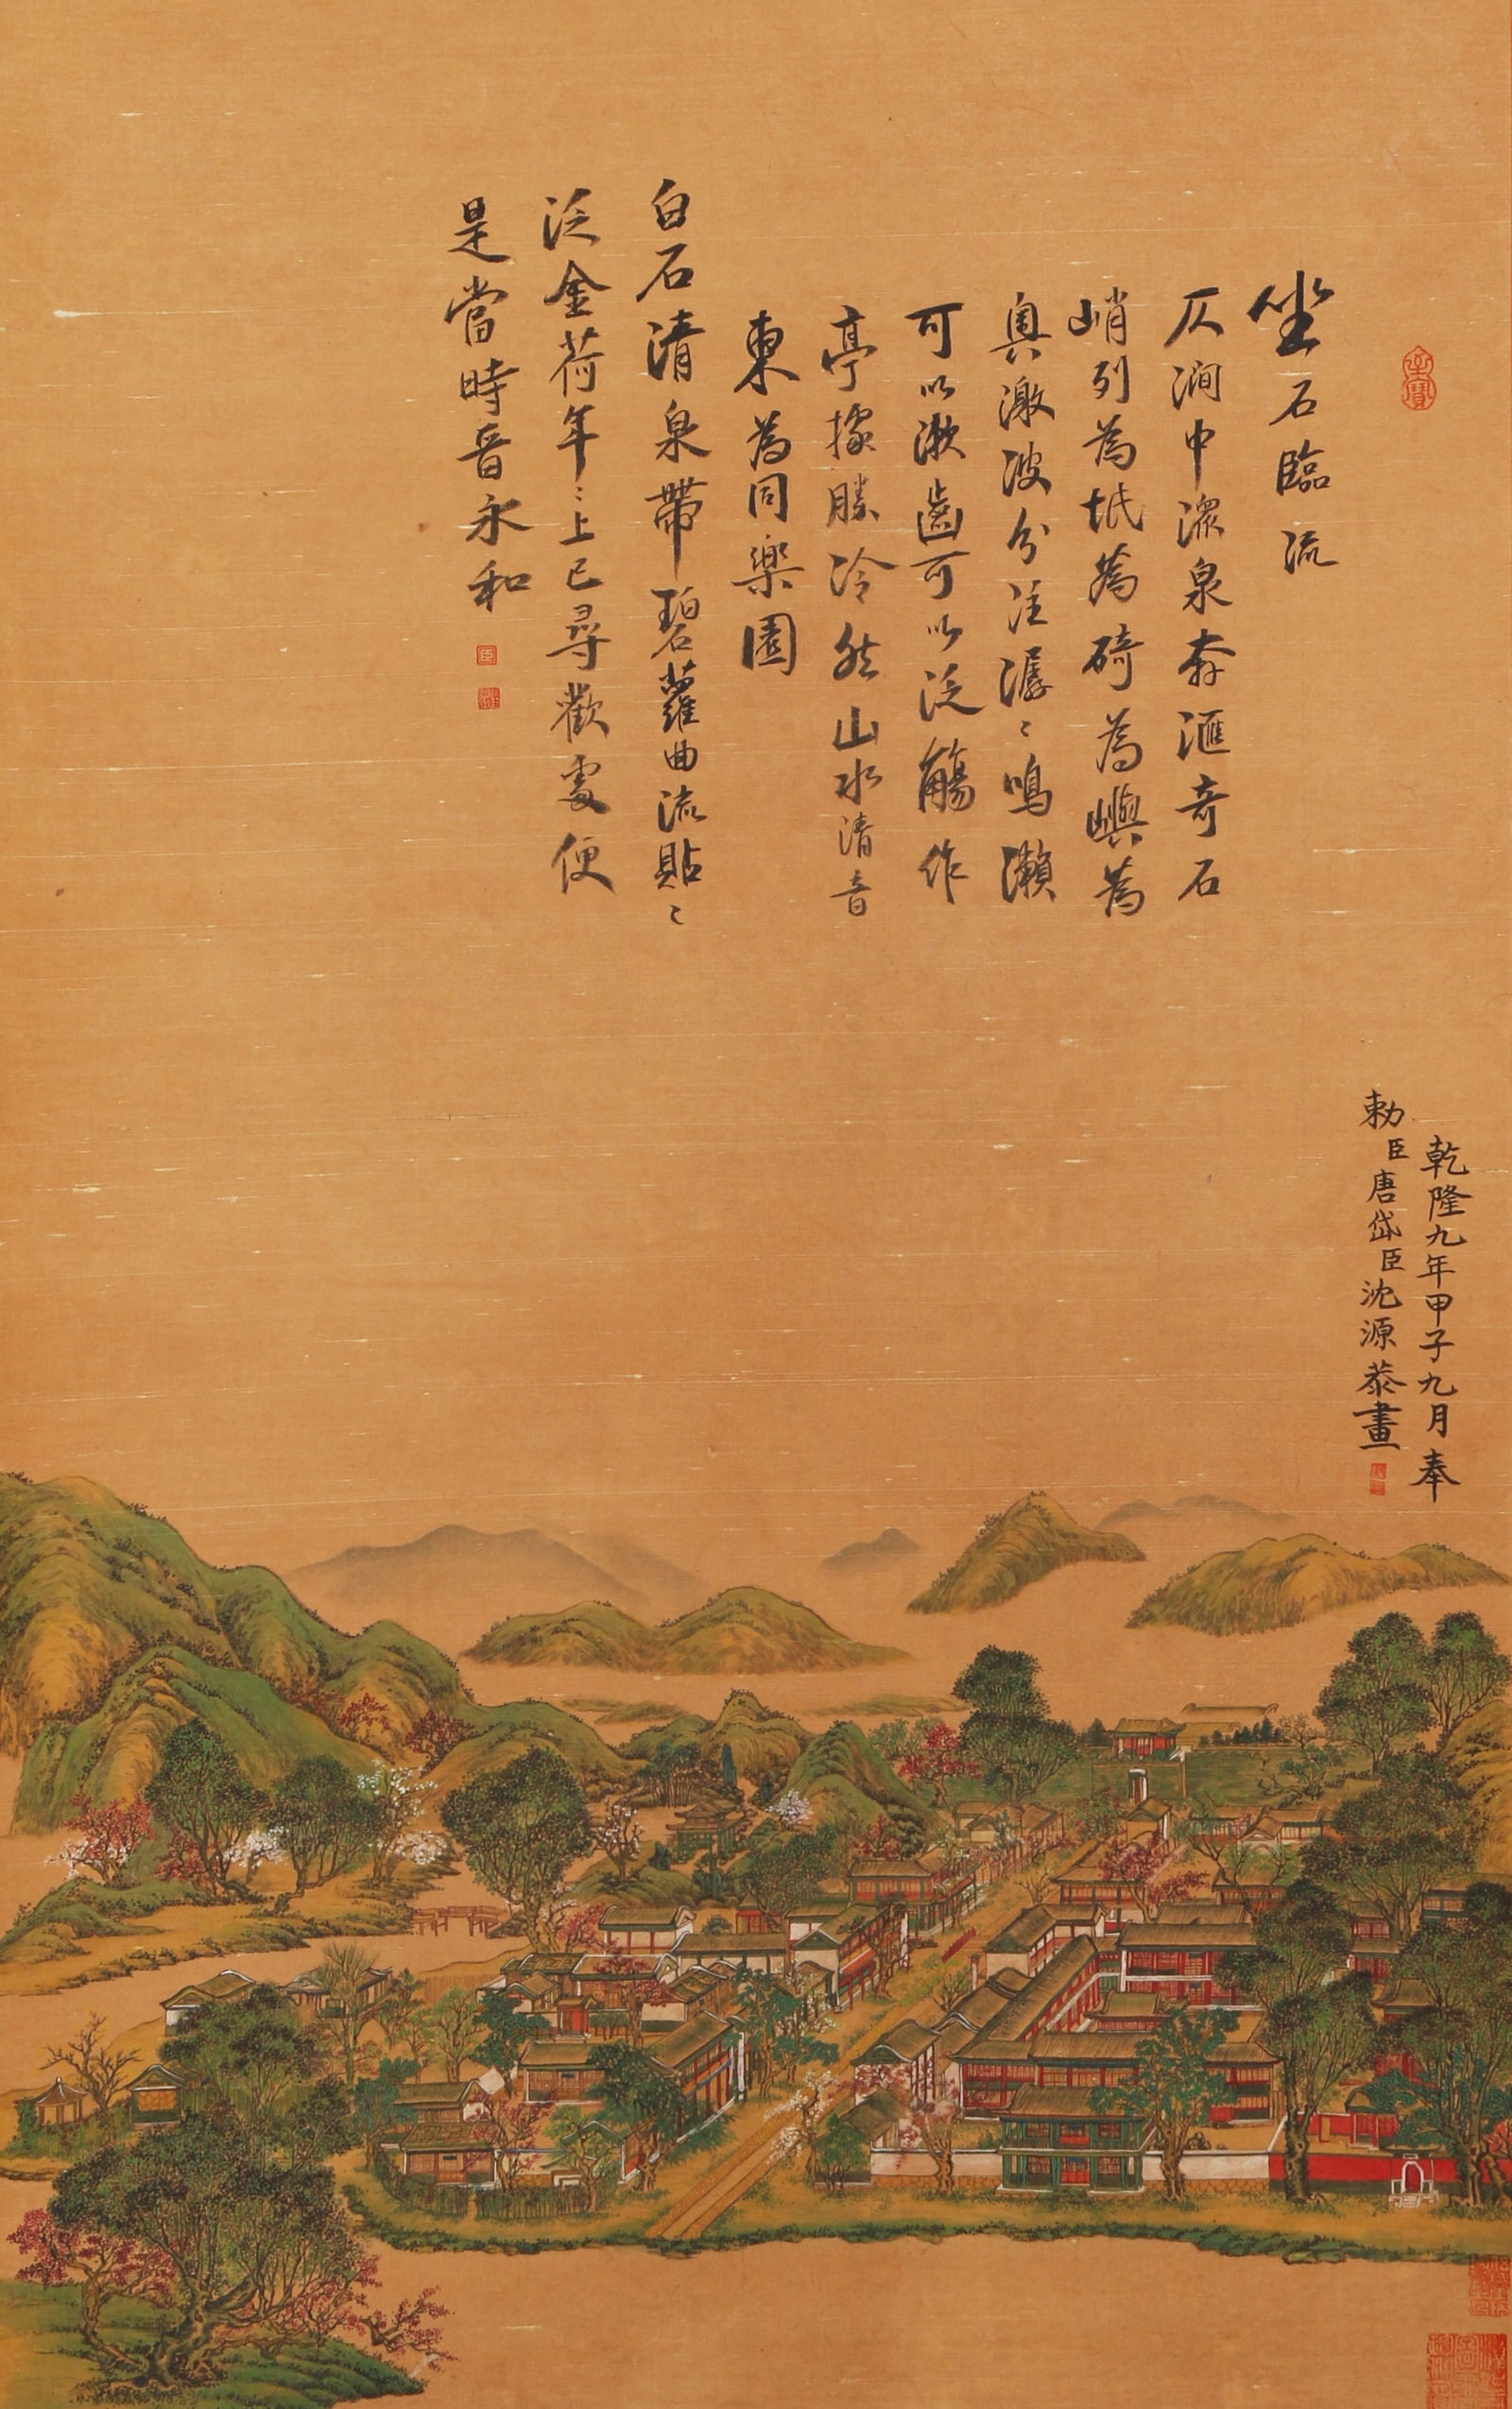 坐石臨流
仄澗中潀泉奔滙奇石
峭列為坻為碕為嶼為
奧激波分注潺〻鳴瀨
可以漱齒可以泛觴作
亭據勝泠然山水清音
東為同樂園
白石清泉帶碧蘿曲流貼〻
泛金荷年〻上巳尋歡處便
是當時晉永和
乾隆九年甲子九月奉
勅臣唐岱臣沈源恭畫